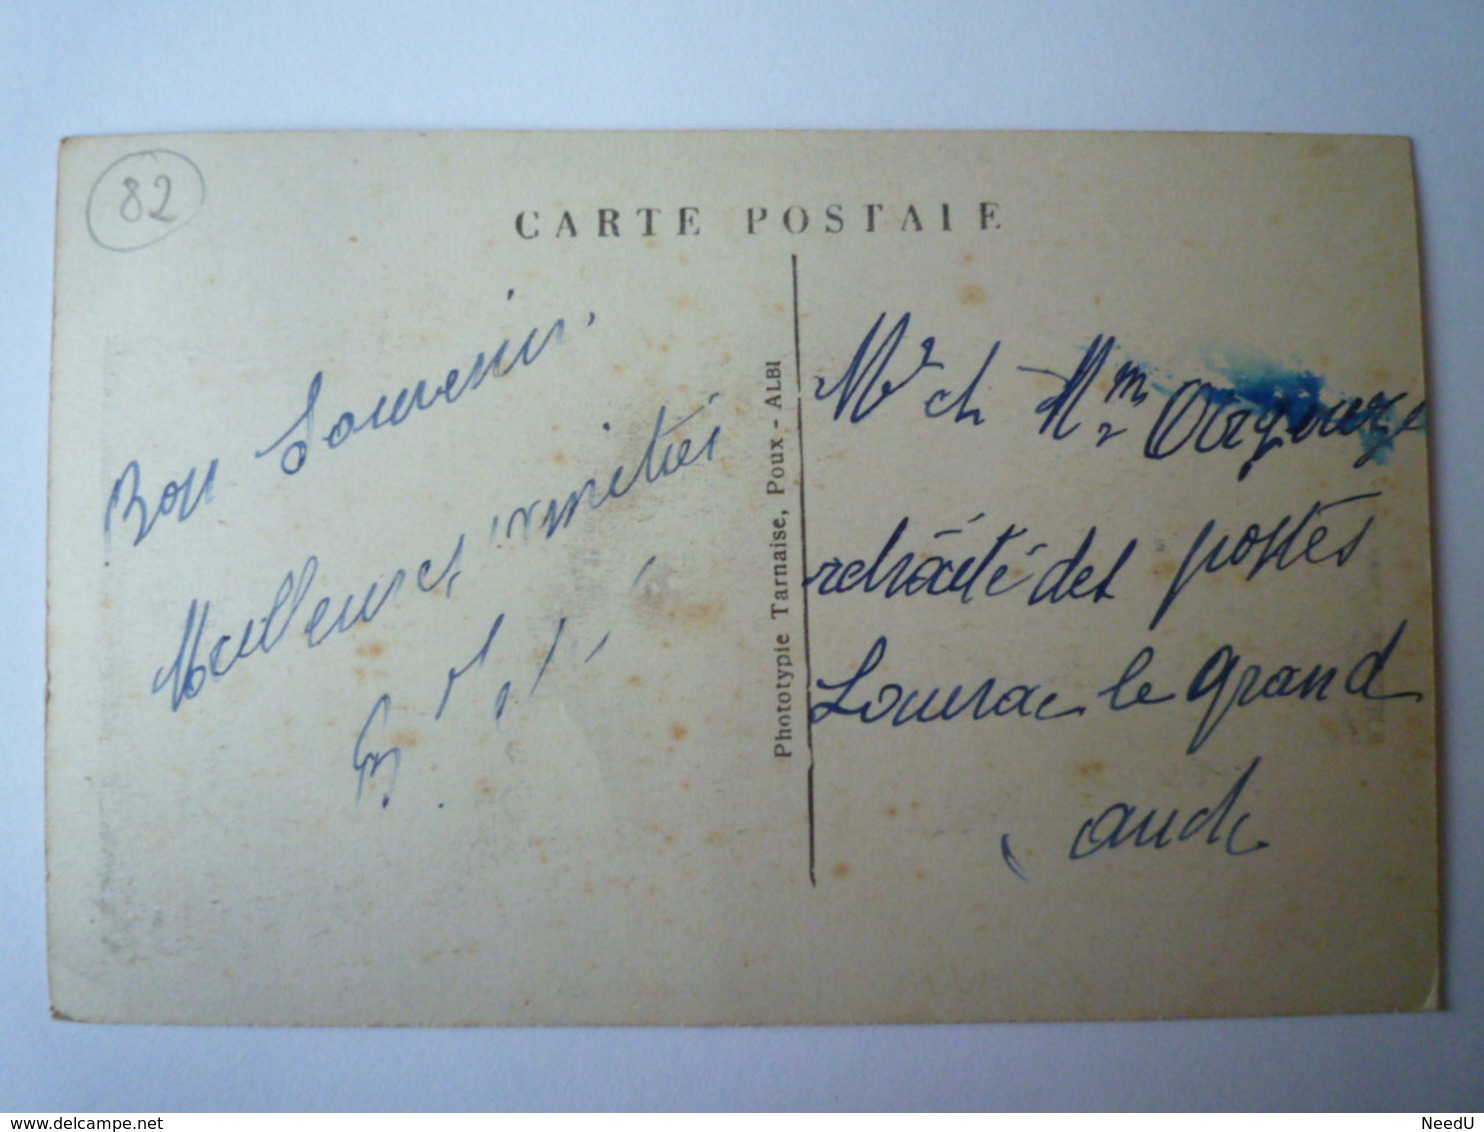 82
CARTE POSTALE
Bon Souvenir.
Meilleures amitiés
Phototypie Tarnaise, Poux - ALBI
Mr et Mme
retraité des postes
Lourac le grand
aude
delcampe.net
NeedU